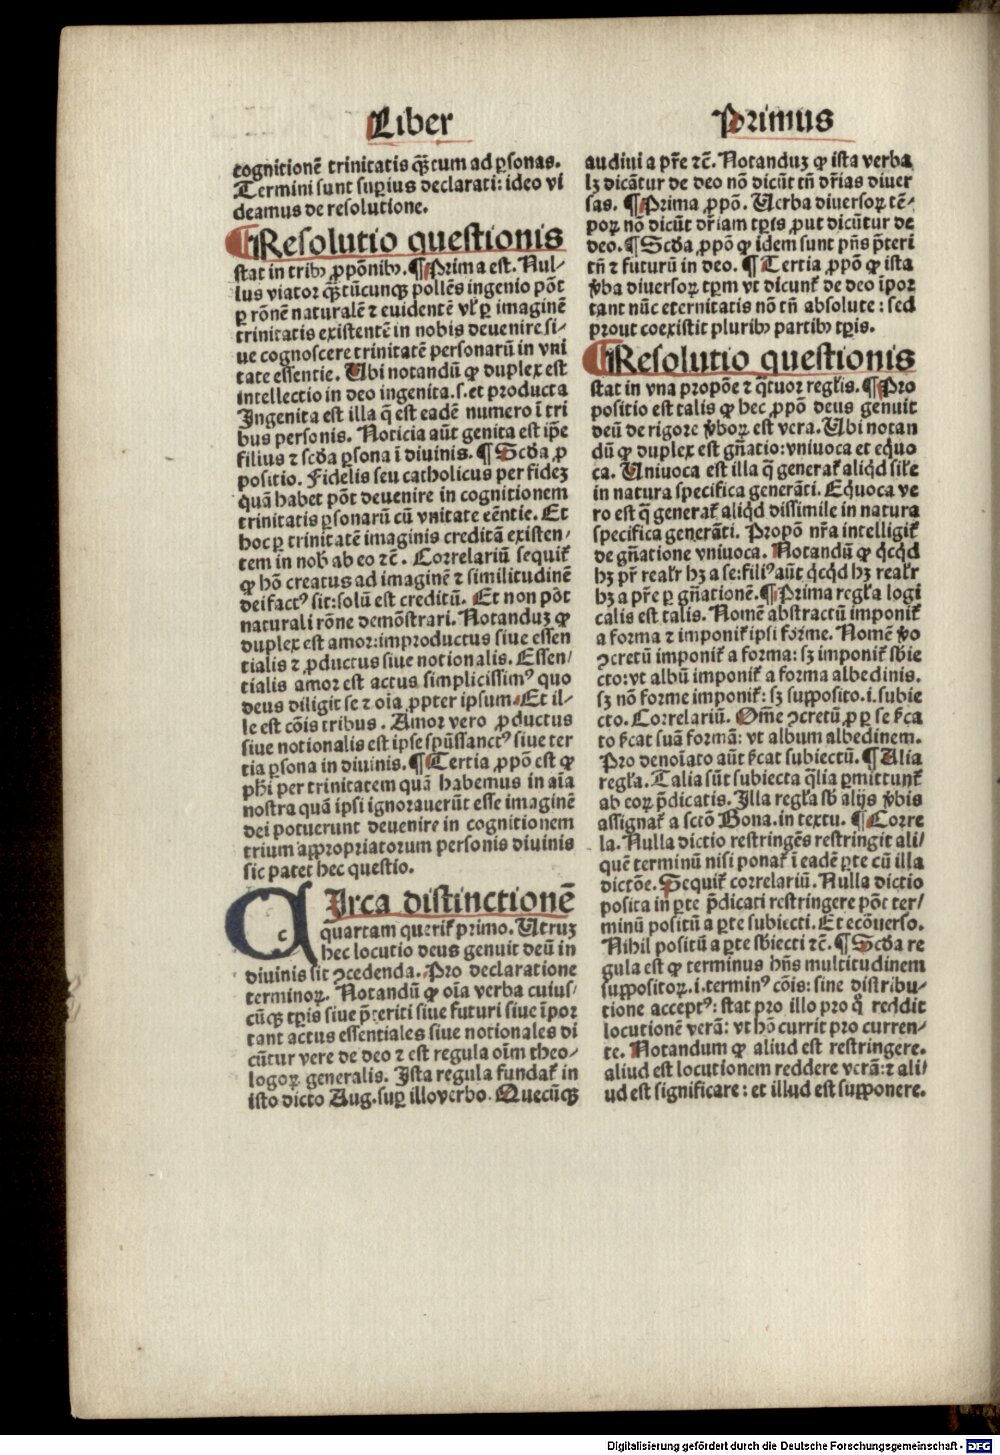 Liber
Primus
cognitionē trinitatis qȝtum ad ꝑsonas.
Termini sunt suꝑius declarati: ideo vi
deamus de resolutione.
¶ Resolutio questionis
stat in tribꝰ ꝓpōnibꝰ. ¶ Prima est. Nul⸗
lus viator qȝtūcunqȝ pollēs ingenio pōt
ꝑ rōnē naturalē ⁊ euidentē vl̄ ꝑ imaginē
trinitatis existentē in nobis deuenire si⸗
ue cognoscere trinitatē personarū in vni
tate essentie. Ubi notandū ꝙ duplex est
intellectio in deo ingenita.s.et producta
Ingenita est illa q̄ est eadē numero ī tri
bus personis. Noticia aūt genita est ip̄e
filius ⁊ scd̄a ꝑsona ī diuinis. ¶ Scd̄a ꝓ
positio. Fidelis seu catholicus per fidēȝ
quā habet pōt deuenire in cognitionem
trinitatis ꝑsonarū cū vnitate eēntie. Et
hoc ꝑ trinitatē imaginis creditā existen⸗
tem in nob̄ ab eo ⁊c̄. Correlariū sequit᷑
ꝙ hō creatus ad imaginē ⁊ similitudinē
dei factꝰ sit:solū est creditū. Et non pōt
naturali rōne demōstrari. Notanduȝ ꝙ
duplex est amor:improductus siue essen
tialis ⁊ ꝓductus siue notionalis. Essen⸗
tialis amor est actus simplicissimꝰ quo
deus diligit se ⁊ oīa ꝓpter ipsum. Et il⸗
le est cōis tribus. Amor vero ꝓductus
siue notionalis est ipse spūssanctꝰ siue ter
tia ꝑsona in diuinis. ¶ Tertia ꝓpō est ꝙ
ph̄i per trinitatem quā habemus in aīa
nostra quā ipsi ignorauerūt esse imaginē
dei potuerunt deuenire in cognitionem
trium appropriatorum personis diuinis
sic patet hec questio.
CIrca distinctionē
quartam querit᷑ primo. Utruȝ
hec locutio deus genuit deū in
diuinis sit ꝯcedenda. Pro declaratione
terminoꝝ. Notandū ꝙ oīa verba cuius⸗
cūqȝ tꝑis siue p̄teriti siue futuri siue īpor
tant actus essentiales siue notionales di
cūtur vere de deo ⁊ est regula oīm theo⸗
logoꝝ generalis. Ista regula fundat᷑ in
isto dicto Aug.suꝑ illo verbo. Quecūqȝ
audiui a pr̄e ⁊c̄. Notanduȝ ꝙ ista verba
lȝ dicātur de deo nō dicūt tn̄ dr̄ias diuer
sas. ¶ Prima ꝓpō. Uerba diuersoꝝ tē⸗
poꝝ nō dicūt dr̄iam tꝑis ꝓut dicūtur de
deo. ¶ Scd̄a ꝓpō ꝙ idem sunt pn̄s p̄teri
tū ⁊ futurū in deo. ¶ Tertia ꝓpō ꝙ ista
v̄ba diuersoꝝ tꝑm vt dicunt᷑ de deo īpor
tant nūc eternitatis nō tn̄ absolute: sed
prout coexistit pluribꝰ partibꝰ tꝑis.
¶ Resolutio questionis
stat in vna propōe ⁊ q̄tuor regl̄is. ¶ Pro
positio est talis ꝙ hec ꝓpō deus genuit
deū de rigore v̄boꝝ est vera. Ubi notan
dū ꝙ duplex est gn̄atio:vniuoca et equo
ca. Uniuoca est illa q̄ generat᷑ aliqd̄ sil̄e
in natura specifica generāti. Equoca ve
ro est q̄ generat᷑ aliqd̄ dissimile in natura
specifica generāti. Propō nr̄a intelligit᷑
de gn̄atione vniuoca. Notandū ꝙ qc̄qd̄
hȝ pr̄ realr̄ hȝ a se:filiꝰ aūt qc̄qd̄ hȝ realr̄
hȝ a pr̄e ꝑ gn̄ationē. ¶ Prima regl̄a logi
calis est talis. Nomē abstractū imponit᷑
a forma ⁊ imponit᷑ ipsi forme. Nomē v̄o
ꝯcretū imponit᷑ a forma: sȝ imponit᷑ sb̄ie
cto:vt albū imponit᷑ a forma albedinis.
sȝ nō forme imponit᷑: sȝ supposito.i.subie
cto. Correlariū. Om̄e ꝯcretū ꝓ ꝑ se s̄ca
to s̄cat suā formā: vt album albedinem.
Pro denoīato aūt s̄cat subiectū. ¶ Alia
regl̄a. Talia sūt subiecta q̄lia ꝑmittunt᷑
ab eoꝝ p̄dicatis. Illa regl̄a sb̄ alijs v̄bis
assignat᷑ a sctō Bona.in textu. ¶ Corre
la. Nulla dictio restringēs restringit ali⸗
quē terminū nisi ponat᷑ ī eadē ꝑte cū illa
dictōe. Sequit᷑ correlariū. Nulla dictio
posita in ꝑte p̄dicati restringere pōt ter⸗
minū positū a ꝑte subiecti. Et ecōuerso.
Nihil positū a ꝑte sb̄iecti ⁊c̄. ¶ Scd̄a re
gula est ꝙ terminus hn̄s multitudinem
suppositoꝝ.i.terminꝰ cōis: sine distribu⸗
tione acceptꝰ: stat pro illo pro q̊ reddit
locutionē verā: vt hō currit pro curren⸗
te. Notandum ꝙ aliud est restringere.
aliud est locutionem reddere verā:⁊ ali⸗
ud est significare: et illud est supponere.
Digitalisierung gefördert durch die Deutsche Forschungsgemeinschaft - DFG